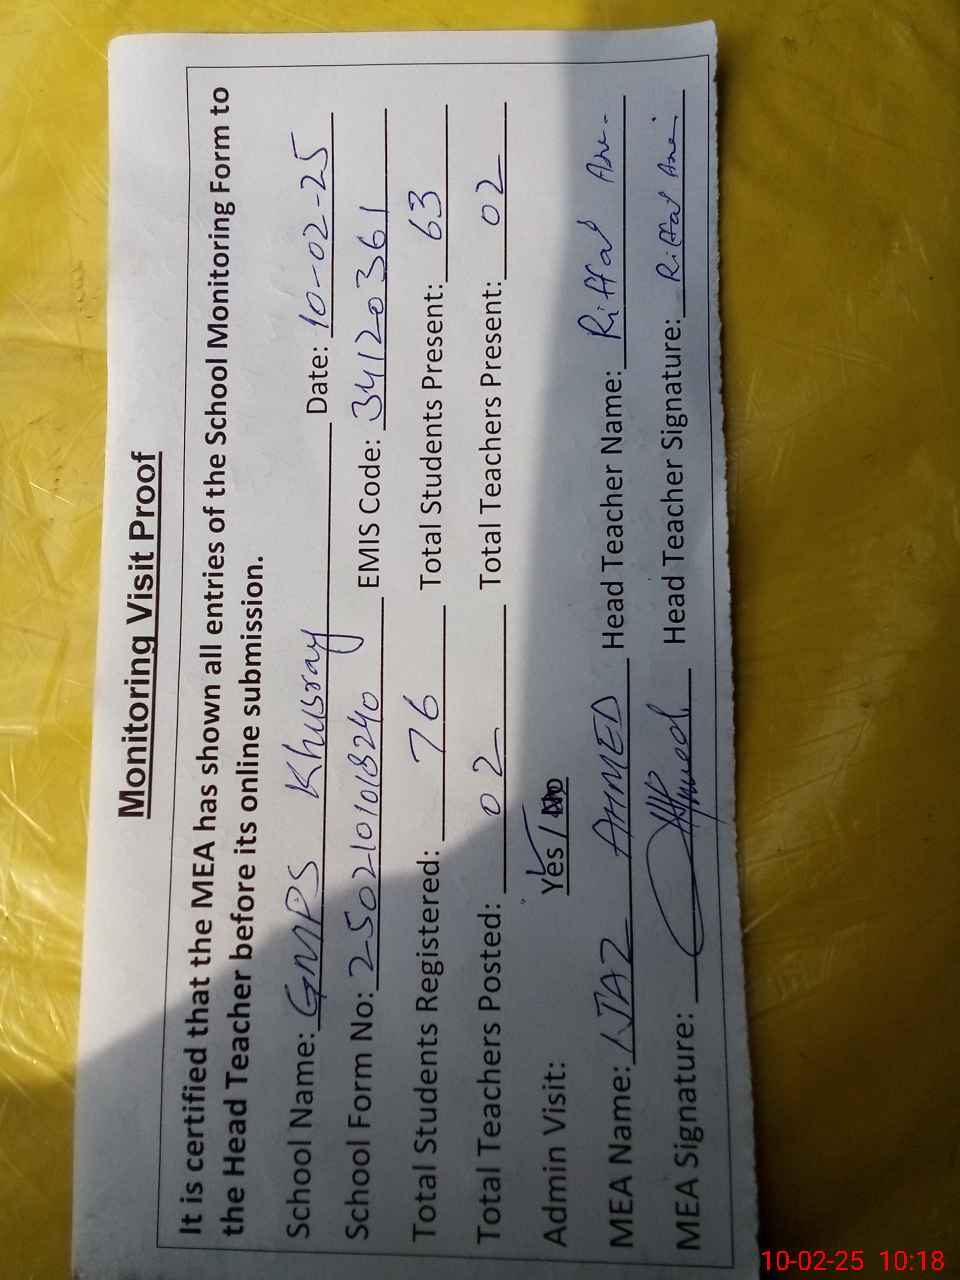 Monitoring Visit Proof
It is certified that the MEA has shown all entries of the School Monitoring Form to
the Head Teacher before its online submission.
School Name: GMPS Khusray Date: 10-02-25
School Form No: 2502101018240 EMIS Code: 34120361
Total Students Registered: 76 Total Students Present: 63
Total Teachers Posted: 02 Total Teachers Present: 02
Admin Visit: Yes / No
MEA Name: IJAZ AHMED Head Teacher Name: Riffat
MEA Signature: Ahmed Head Teacher Signature: Riffat
10-02-25 10:18